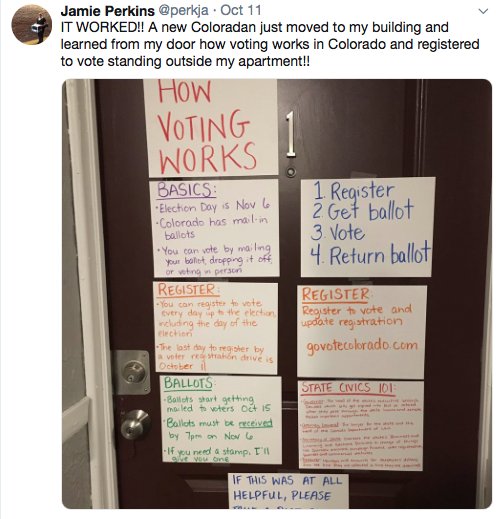 Jamie Perkins @perkja · Oct 11
IT WORKED!! A new Coloradan just moved to my building and
learned from my door how voting works in Colorado and registered
to vote standing outside my apartment!!
HOW
VOTING
WORKS
1
BASICS:
•Election Day is Nov 6
•Colorado has mail-in
ballots
•You can vote by mailing
your ballot, dropping it off,
or voting in person
1. Register
2. Get ballot
3. Vote
4. Return ballot
REGISTER:
•You can register to vote
every day up to the election,
including the day of the
election
•The last day to register by
a voter registration drive is
October 11
REGISTER:
Register to vote and
update registration
govotecolorado.com
BALLOTS
•Ballots start getting
mailed to voters Oct 15
•Ballots must be received
by 7pm on Nov 6
•If you need a stamp, I'll
give you one
STATE CIVICS 101:
IF THIS WAS AT ALL
HELPFUL, PLEASE